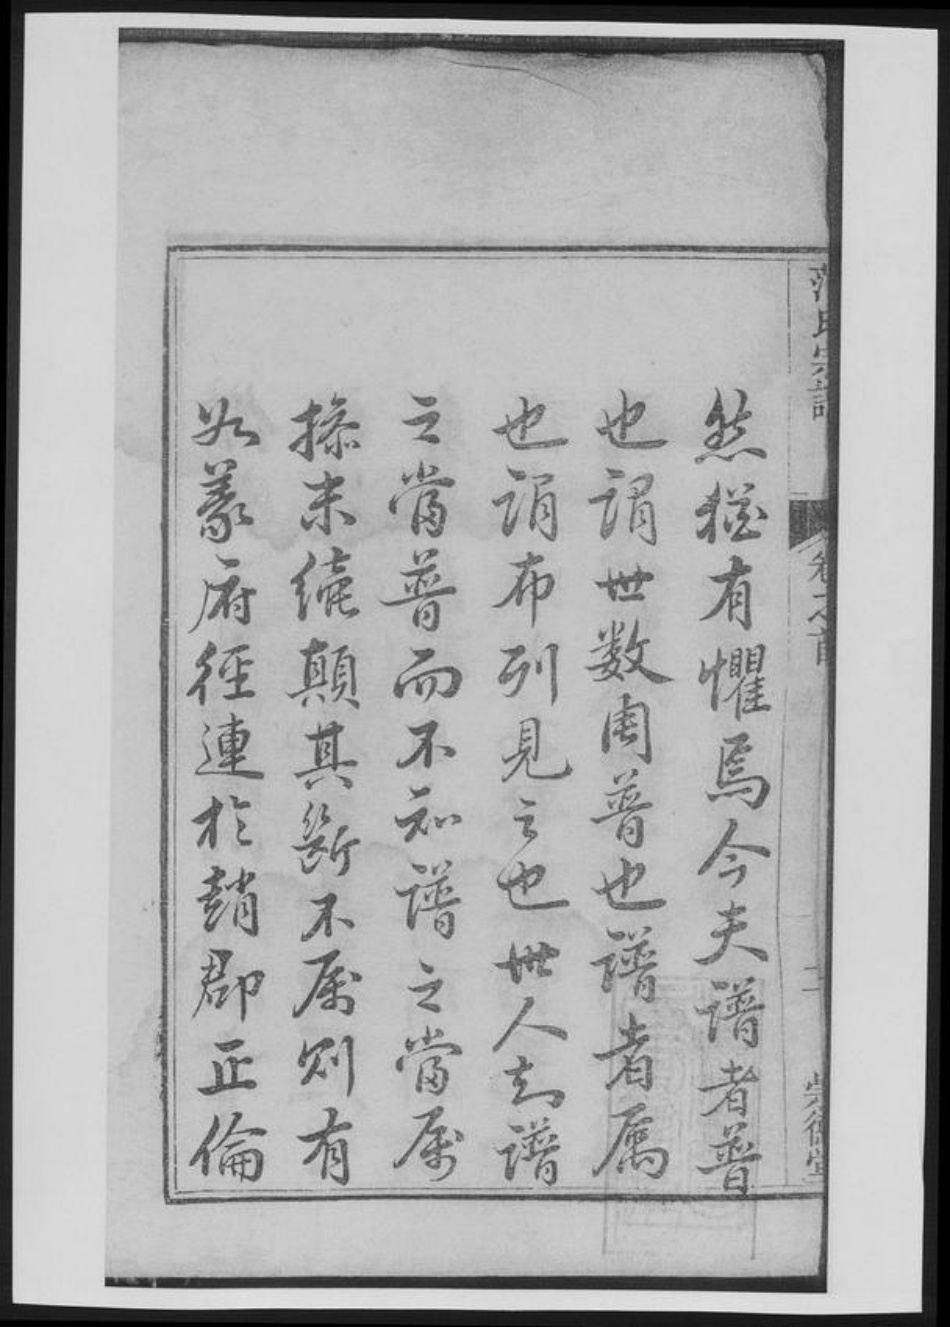 范氏宗譜
卷之首
二
崇德堂
然猶有懼焉今夫譜者普
也謂世数周普也譜者属
也謂布列見之也世人知譜
之當普而不知譜之當属
搽末續顛其斷不属则有
如義府徑連於趙郡正倫